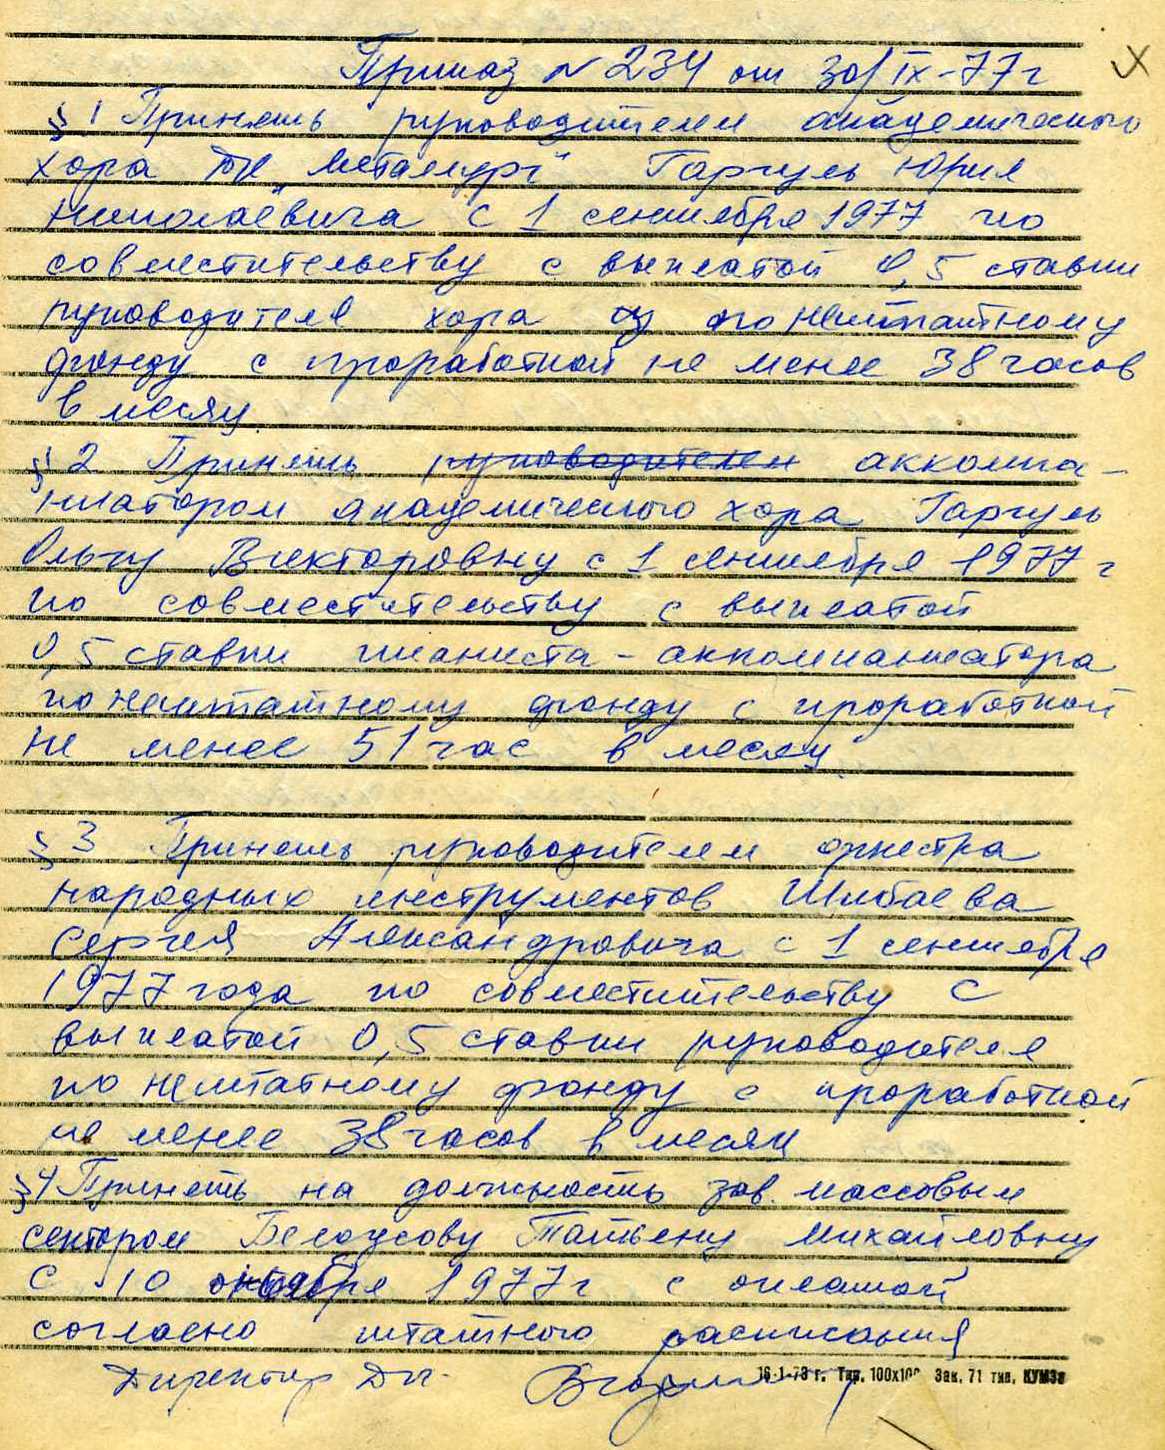 Приказ № 234 от 30/IX-77 г
§ 1 Принять руководителем академического
хора ДК „Металлург" Гаргуль Юрия
Николаевича с 1 сентября 1977 по
совместительству с выплатой 0,5 ставки
руководителя хора по нештатному
фонду с проработкой не менее 38 часов
в месяц
§ 2 Принять руководителем аккомпа-
ниатором академического хора Гаргуль
Ольгу Викторовну с 1 сентября 1977 г
по совместительству с выплатой
0,5 ставки пианиста-аккомпаниатора
по нештатному фонду с проработкой
не менее 51 час в месяц
§ 3 Принять руководителем оркестра
народных инструментов Шибаева
Сергея Александровича с 1 сентября
1977 года по совместительству с
выплатой 0,5 ставки руководителя
по нештатному фонду с проработкой
не менее 38 часов в месяц
§ 4 Принять на должность зав. массовым
сектором Белоусову Татьяну Михайловну
с 10 октября 1977 г с оплатой
согласно штатного расписания
Директор ДК
16-1-73 г. Тир. 100х100 Зак. 71 тип. КУМЗа